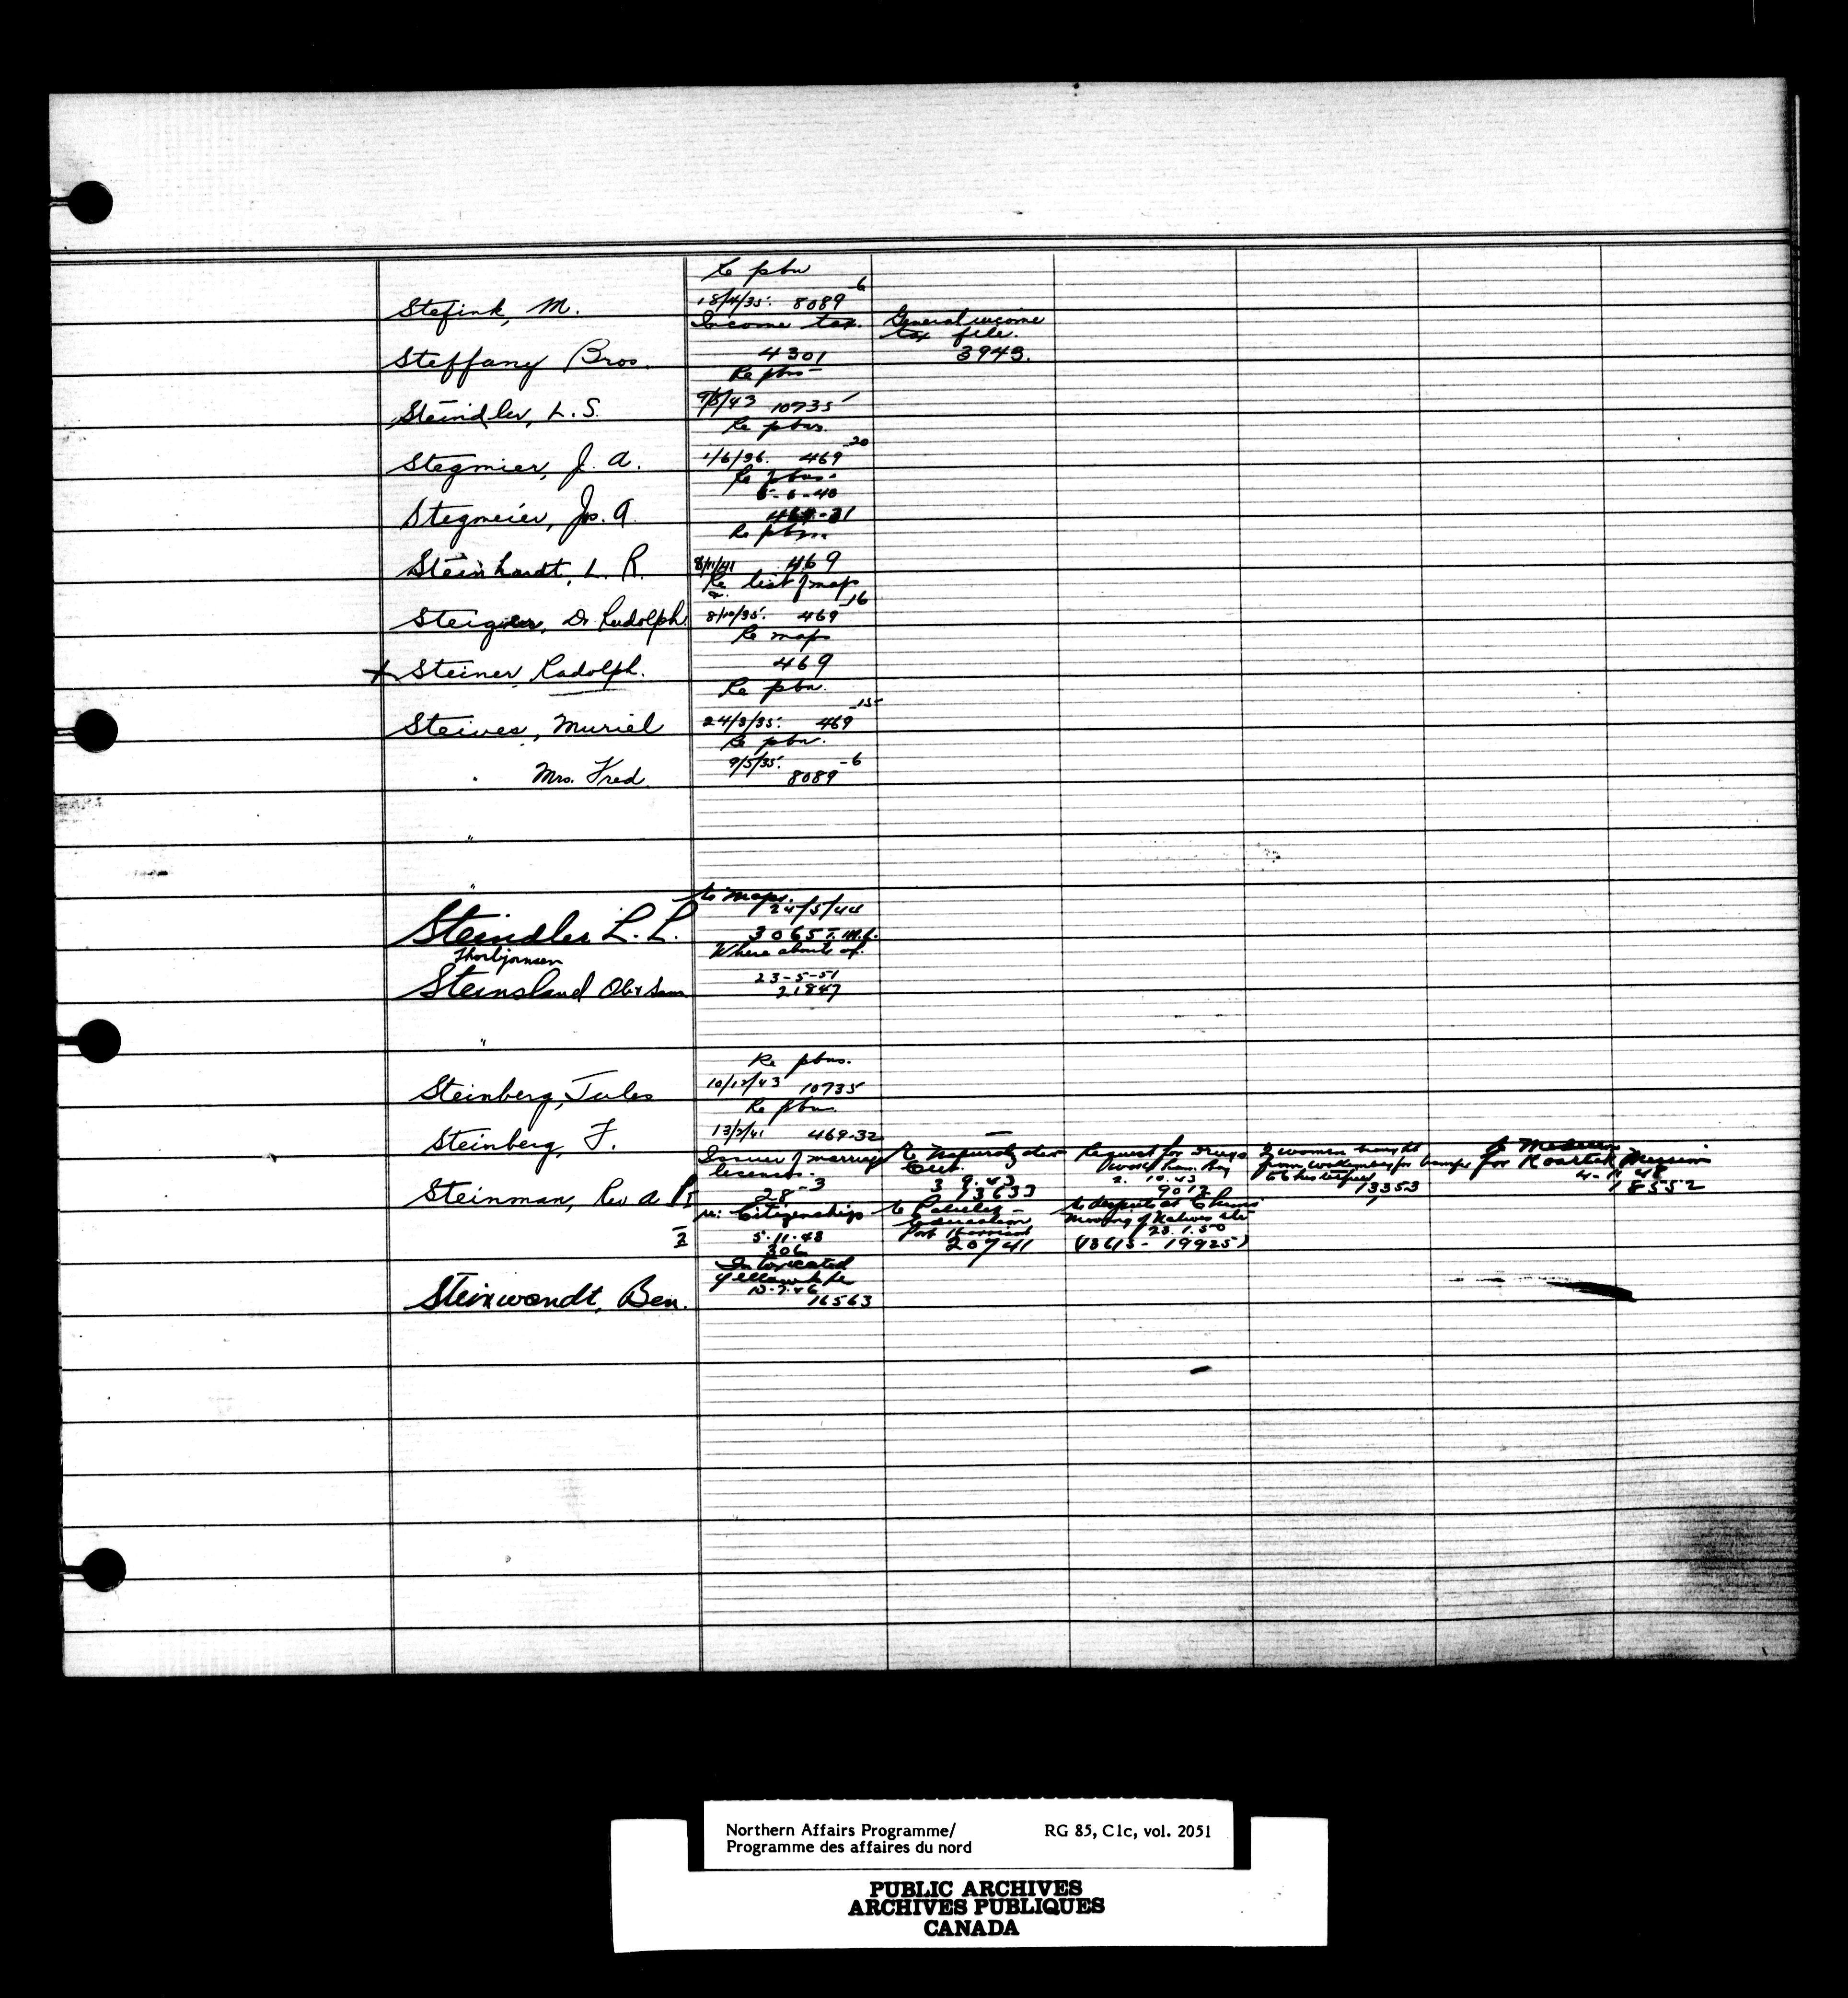 Re pbn
Stefink, M. 18/4/35. 8089-6
Income tax. General income tax file.
Steffany Bros. 4301 3943.
Re pbns
Steindler, L. S. 9/8/43 10735
Re pbns.
Stegmier, J. A. 1/6/36. 469-20
Re pbns.
5-6-40
Stegmeier, Jos. A. 469-31
Re pbns.
Steinhardt, L. R. 8/11/41 469
Re list of maps
Steiger, Dr Rudolph 8/10/35. 469-16
Re maps
x Steiner Radolph. 469
Re pbn.
Steives, Muriel 24/3/35. 469-15
Re pbn.
" Mrs. Fred. 9/5/35. 8089-6
"
"
Re Maps.
24/5/44
Steindler L. L. 3065 I.M.f.
Thorbjornsen Where abouts of.
23-5-51
Steinsland Ole 21847
"
Re pbns.
Steinberg, Jules 10/12/43 10735
Re pbn
Steinberg, F. 13/2/41 469-32
Issuer of marriage licenses. Re Cert. Request for Drugs 2 women brought from for
for Koartak Mission
3.9.43 2.10.43 4-11-48
Steinman, Rev A 28-3 13633 9012 13353 18552
re: Citizenship Re education Port Harrison Re moving of Natives etc
5.11.48 23.1.50
306 20741 (18615-19925)
Intoxicated
Yellowknife
Steinwandt, Ben. 16563
Northern Affairs Programme/ RG 85, C1c, vol. 2051
Programme des affaires du nord
PUBLIC ARCHIVES
ARCHIVES PUBLIQUES
CANADA